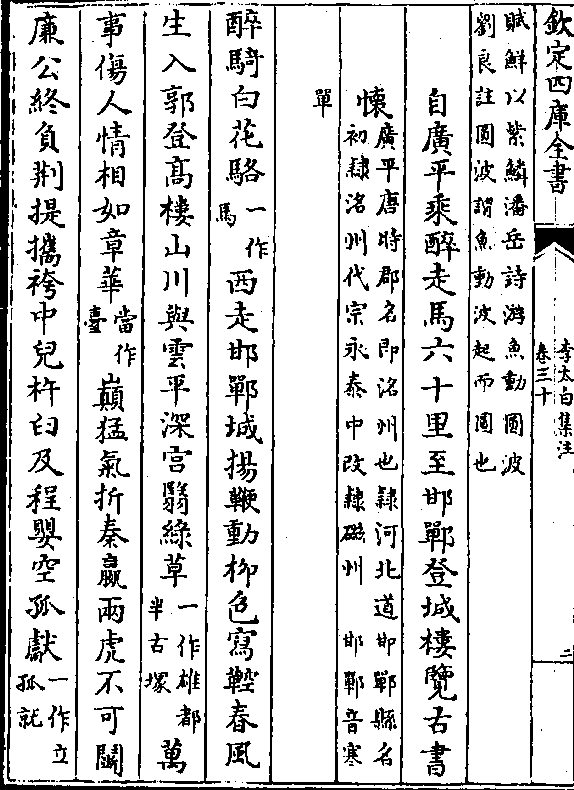 欽定四庫全書
李太白集注
卷三十
二
賦鮮以紫鱗潘岳詩游魚動圓波
劉良註圓波謂魚動波起而圓也
自廣平乘醉走馬六十里至邯鄲登城樓覽古書
懷
廣平唐時郡名即洺州也隸河北道邯鄲縣名
初隸洺州代宗永泰中改隸磁州 邯鄲音寒
單
醉騎白花駱一作馬西走邯鄲城揚鞭動柳色寫鞚春風
生入郭登高樓山川與雲平深宮翳綠草一作雄都半古塚萬
事傷人情相如章華當作臺巔猛氣折秦嬴兩虎不可鬭
廉公終負荆提攜袴中兒杵臼及程嬰空孤獻一作立孤就